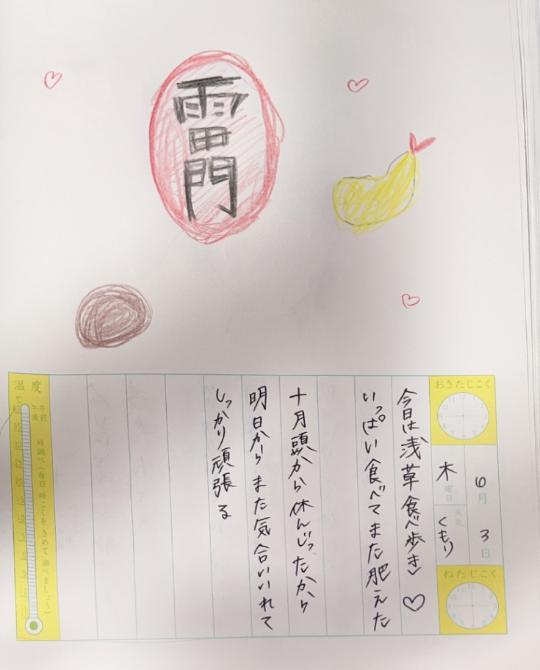 雷門
おきたじこく
10月3日
木曜日
天気くもり
ねたじこく
今日は浅草食べ歩き♡
いっぱい食べてまた肥えた
十月頭から休んじったから
明日からまた気合いいれて
しっかり頑張る
温度